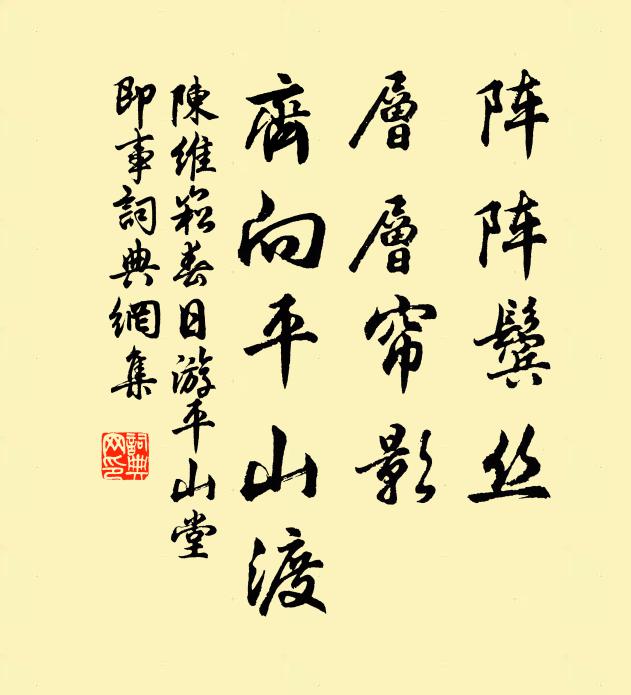 阵阵鬓丝
層層帘影
齊向平山渡
陳維崧春日游平山堂
即事詞典網集
詞典
网印